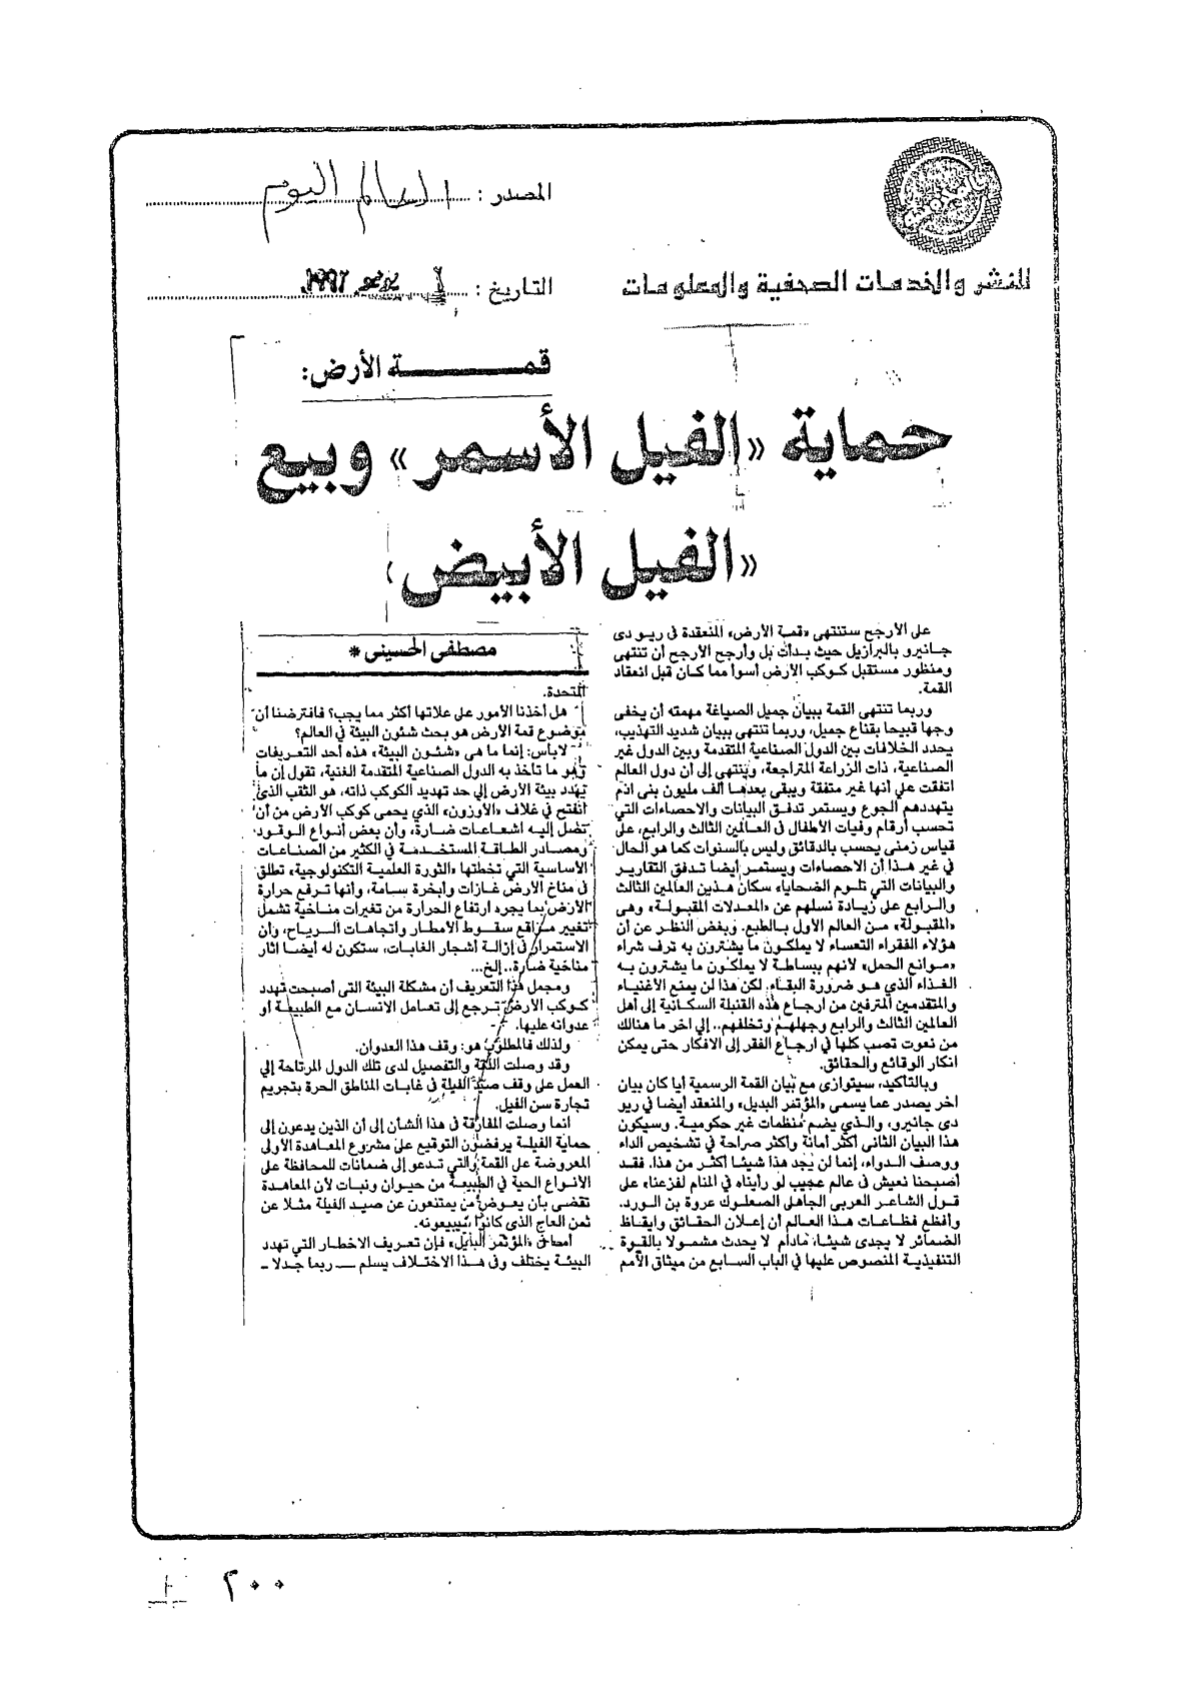 المصدر : العالم اليوم
للنشر والخدمات الصحفية والمعلومات
التاريخ : يونيو ١٩٩٢
قمة الأرض:
حماية «الفيل الأسمر» وبيع
«الفيل الأبيض»
مصطفى الحسينى *
على الأرجح ستنتهى «قمة الأرض» المنعقدة فى ريو دى
جانيرو بالبرازيل حيث بدأت بل وأرجح الأرجح أن تنتهى
ومنظور مستقبل كوكب الأرض أسوأ مما كان قبل انعقاد
القمة.
وربما تنتهى القمة ببيان جميل الصياغة مهمته أن يخفى
وجها قبيحا بقناع جميل، وربما تنتهى ببيان شديد التهذيب،
يحدد الخلافات بين الدول الصناعية المتقدمة وبين الدول غير
الصناعية، ذات الزراعة المتراجعة، وينتهى إلى أن دول العالم
اتفقت على أنها غير متفقة ويبقى بعدها ألف مليون بنى ادم
يتهددهم الجوع ويستمر تدفق البيانات والاحصاءات التى
تحسب أرقام وفيات الأطفال فى العالمين الثالث والرابع، على
قياس زمنى يحسب بالدقائق وليس بالسنوات كما هو الحال
فى غير هذا أن الاحصاءات ويستمر أيضا تدفق التقارير
والبيانات التى تلوم الضحايا، سكان هذين العالمين الثالث
والرابع على زيادة نسلهم عن «المعدلات المقبولة» وهى
«المقبولة» من العالم الأول بالطبع. وبغض النظر عن أن
هؤلاء الفقراء التعساء لا يملكون ما يشترون به ترف شراء
«موانع الحمل» لأنهم ببساطة لا يملكون ما يشترون به
الغذاء الذى هو ضرورة البقاء. لكن هذا لن يمنع الأغنياء
والمتقدمين المترفين من ارجاع هذه القنبلة السكانية إلى أهل
العالمين الثالث والرابع وجهلهم وتخلفهم.. إلى اخر ما هنالك
من نعوت تصب كلها فى ارجاع الفقر إلى الافكار حتى يمكن
انكار الوقائع والحقائق.
وبالتأكيد، سيتوازى مع بيان القمة الرسمية أيا كان بيان
اخر يصدر عما يسمى «المؤتمر البديل» والمنعقد أيضا فى ريو
دى جانيرو، والذى يضم منظمات غير حكومية. وسيكون
هذا البيان الثانى أكثر أمانة وأكثر صراحة فى تشخيص الداء
ووصف الدواء، إنما لن يجد هذا شيئا أكثر من هذا. فقد
أصبحنا نعيش فى عالم عجيب لو رأيناه فى المنام لفزعنا» على
قول الشاعر العربى الجاهلى الصعلوك عروة بن الورد.
وأفظع فظاعات هذا العالم أن إعلان الحقائق وايقاظ
الضمائر لا يجدى شيئا، مادام لا يحدث مشمولا بالقوة
التنفيذية المنصوص عليها فى الباب السابع من ميثاق الأمم
المتحدة.
هل أخذنا الأمور على علاتها أكثر مما يجب؟ فافترضنا أن
موضوع قمة الأرض هو بحث شئون البيئة فى العالم؟
لابأس: إنما ما هى «شئون البيئة» هذه أحد التعريفات
وهو ما تأخذ به الدول الصناعية المتقدمة الغنية، تقول إن ما
يهدد بيئة الأرض إلى حد تهديد الكوكب ذاته، هو الثقب الذى
انفتح فى غلاف «الأوزون» الذى يحمى كوكب الأرض من أن
تصل إليه اشعاعات ضارة، وأن بعض أنواع الوقود
ومصادر الطاقة المستخدمة فى الكثير من الصناعات
الأساسية التى تخطتها «الثورة العلمية التكنولوجية» تطلق
فى مناخ الأرض غازات وأبخرة سامة، وأنها ترفع حرارة
الأرض بما يجره ارتفاع الحرارة من تغيرات مناخية تشمل
تغيير مواقع سقوط الأمطار واتجاهات الرياح، وأن
الاستمرار فى إزالة أشجار الغابات، ستكون له أيضا اثار
مناخية ضارة.. إلخ...
ومجمل هذا التعريف أن مشكلة البيئة التى أصبحت تهدد
كوكب الأرض ترجع إلى تعامل الانسان مع الطبيعة أو
عدوانه عليها.
ولذلك فالمطلوب هو: وقف هذا العدوان.
وقد وصلت الدقة والتفصيل لدى تلك الدول المرتاحة إلى
العمل على وقف صيد الفيلة فى غابات المناطق الحرة بتجريم
تجارة سن الفيل.
انما وصلت المفارقة فى هذا الشأن إلى أن الذين يدعون إلى
حماية الفيلة يرفضون التوقيع على مشروع المعاهدة الأولى
المعروضة على القمة والتى تدعو إلى ضمانات للمحافظة على
الأنواع الحية فى الطبيعة من حيوان ونبات لأن المعاهدة
تقضى بأن يعوض من يمتنعون عن صيد الفيلة مثلا عن
ثمن العاج الذى كانوا يبيعونه.
أما فى «المؤتمر البديل» فإن تعريف الاخطار التى تهدد
البيئة يختلف وفى هذا الاختلاف يسلم — ربما جدلا -
٢٠٠